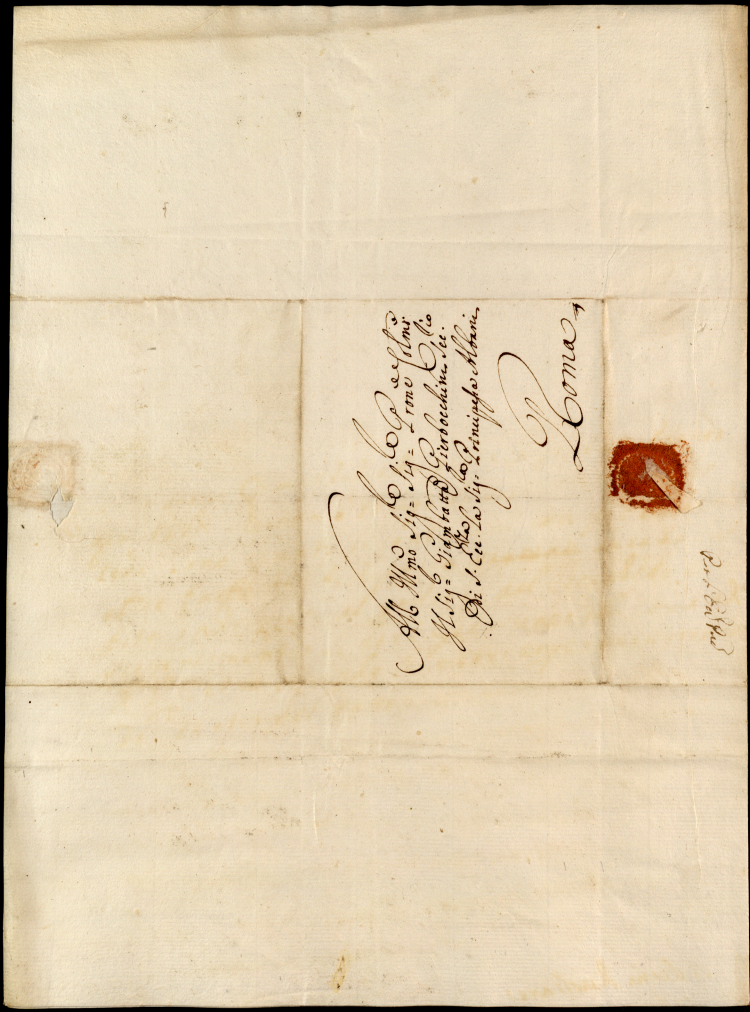 All Illmo Sig:e Sig:e Prone Colmo
Il Sig:e Giambatta Pierbocchini Sec:rio
Di S. Ecc:za La Sig:a Principessa Albani
Roma